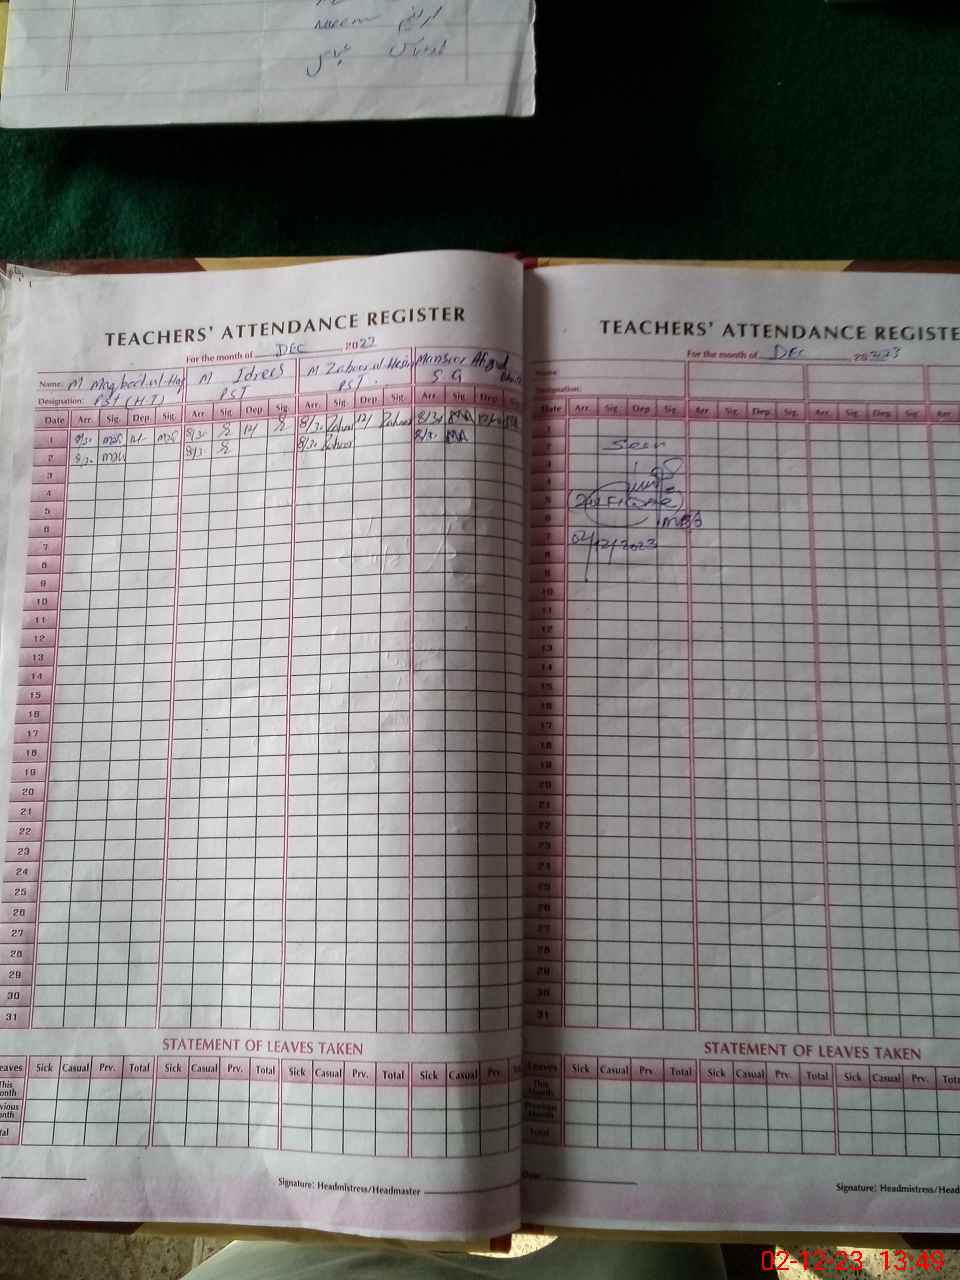 Naeem
عباس
TEACHERS' ATTENDANCE REGISTER
For the month of DEC, 2022
Name: M Maqbool.ul-Haq M Idrees M Zahoor.ul-Hassan Mansoor Ahmad
Designation: PST (H.T) PST PST S G
Date Arr. Sig. Dep. Sig. Arr. Sig. Dep. Sig. Arr. Sig. Dep. Sig. Arr. Sig. Dep. Sig.
1 8/30 8/30 8/30 8/30 MA
2 8/30 8/30 8/30 8/30 MA
3
4
5
6
7
8
9
10
11
12
13
14
15
16
17
18
19
20
21
22
23
24
25
26
27
28
29
30
31
STATEMENT OF LEAVES TAKEN
Leaves Sick Casual Prv. Total Sick Casual Prv. Total Sick Casual Prv. Total Sick Casual Prv.
This Month
Previous Month
Total
Signature: Headmistress/Headmaster
TEACHERS' ATTENDANCE REGISTE
For the month of DEC 2023
Name:
Designation:
Date Arr. Sig. Dep. Sig. Arr. Sig. Dep. Sig. Arr. Sig. Dep. Sig. Arr.
1
2 Seen
3
4
5 (ZULFIQAR)
6
7 02/12/2023
8
9
10
11
12
13
14
15
16
17
18
19
20
21
22
23
24
25
26
27
28
29
30
31
STATEMENT OF LEAVES TAKEN
Leaves Sick Casual Prv. Total Sick Casual Prv. Total Sick Casual Prv. Tot
This Month
Previous Month
Total
Date:
Signature: Headmistress/Head
02-12-23 13:49